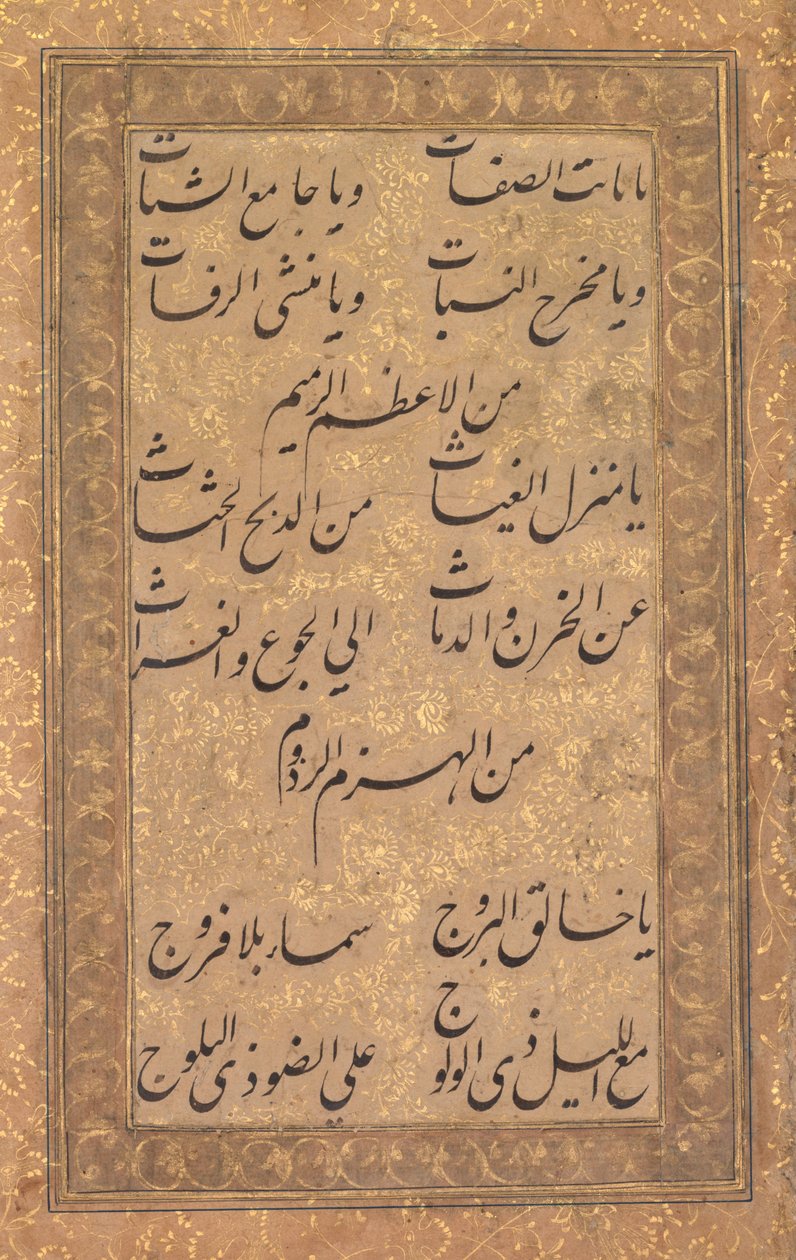 یا ثابت الصفات ویا جامع الشتات
ویا مخرج النبات ویا منشی الرفات
من الاعظم الرمیم
یا منزل الغیاث من الدلح الحثاث
عن الحزن والدماث الی الجوع والغراث
من الهزم الرذوم
یا خالق البروج سماء بلا فروج
مع اللیل ذی الولوج علی الضو ذی البلوج